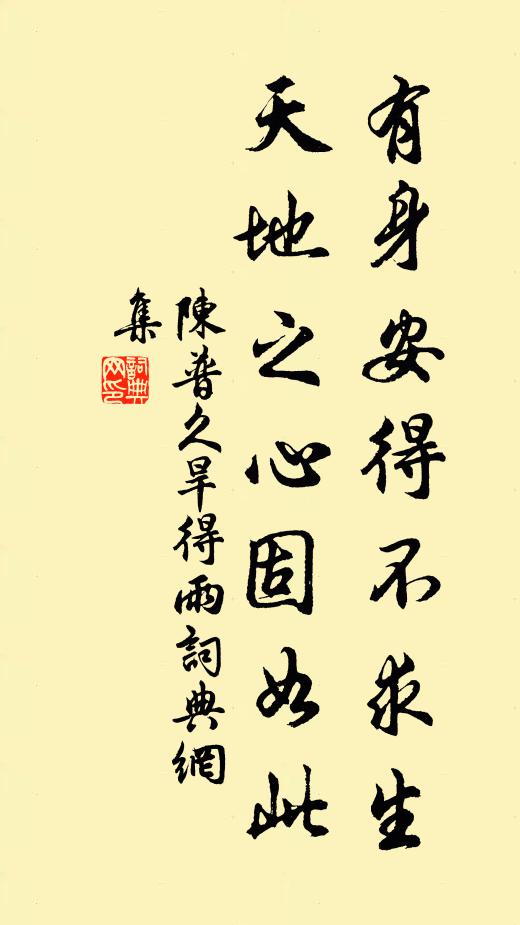 有身安得不求生
天地之心固如此
陳普久旱得雨詞典網
集
詞典
网印